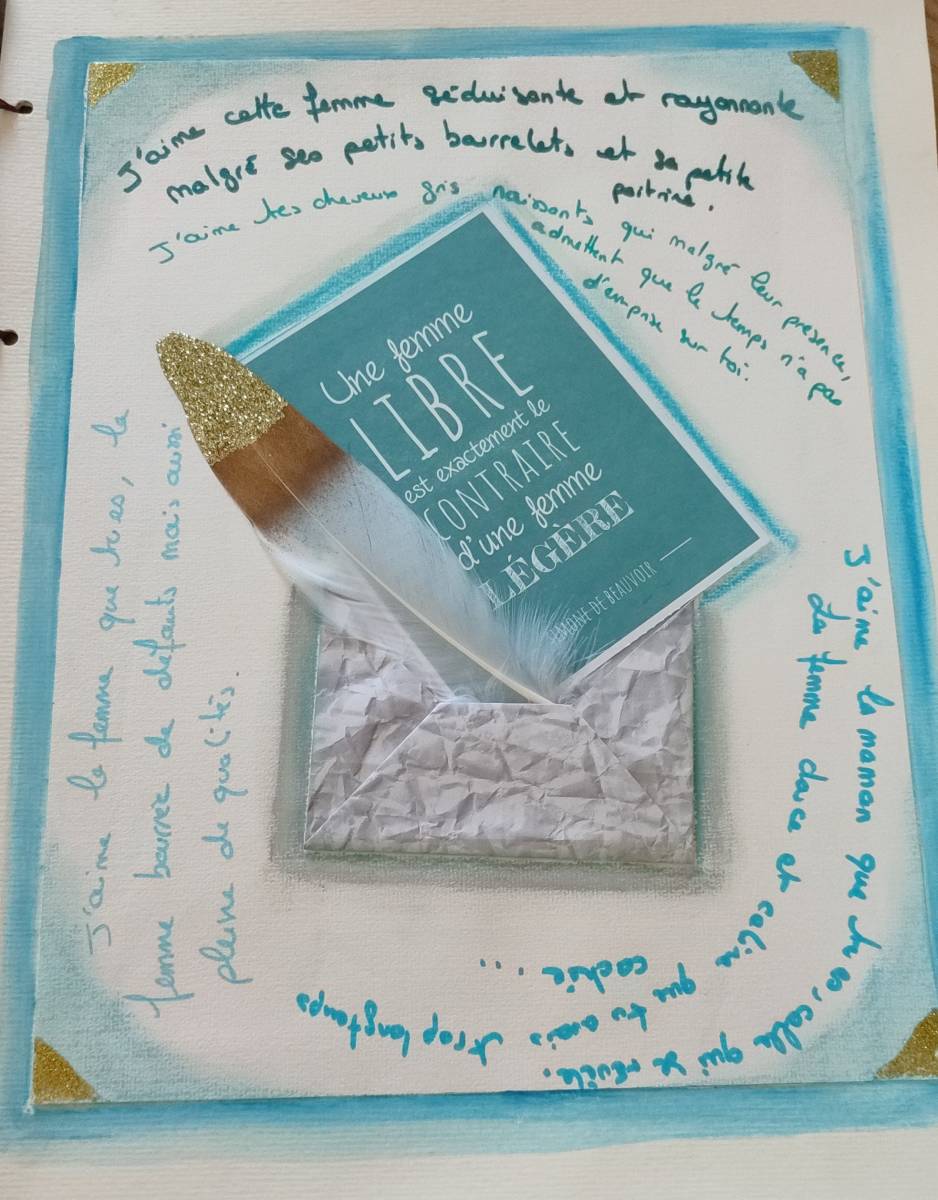 J'aime cette femme séduisante et rayonnante
malgré ses petits bourrelets et sa petite
poitrine.
J'aime tes cheveux gris naissants qui malgré leur présence,
admettent que le temps n'a pas
d'emprise sur toi.
Une femme
LIBRE
est exactement le
CONTRAIRE
d'une femme
LÉGÈRE
SIMONE DE BEAUVOIR
J'aime la femme que tu es, la
femme bourrée de défauts mais aussi
pleine de qualités.
J'aime la maman que tu es, celle qui se révèle.
La femme douce et caline que tu avais trop longtemps
cachée...